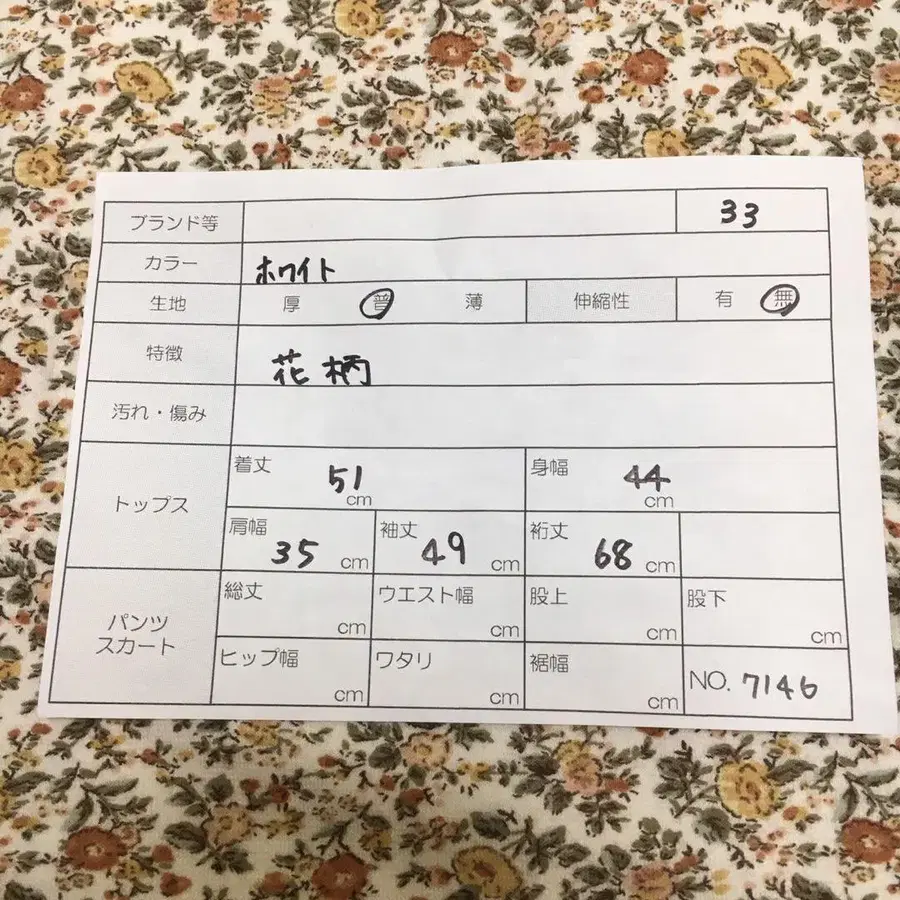 ブランド等 33
カラー ホワイト
生地 厚 普 薄 伸縮性 有 無
特徴 花柄
汚れ・傷み
トップス 着丈 51 cm 身幅 44 cm
肩幅 35 cm 袖丈 49 cm 裄丈 68 cm
パンツ スカート 総丈 cm ウエスト幅 cm 股上 cm 股下 cm
ヒップ幅 cm ワタリ cm 裾幅 cm NO. 7146